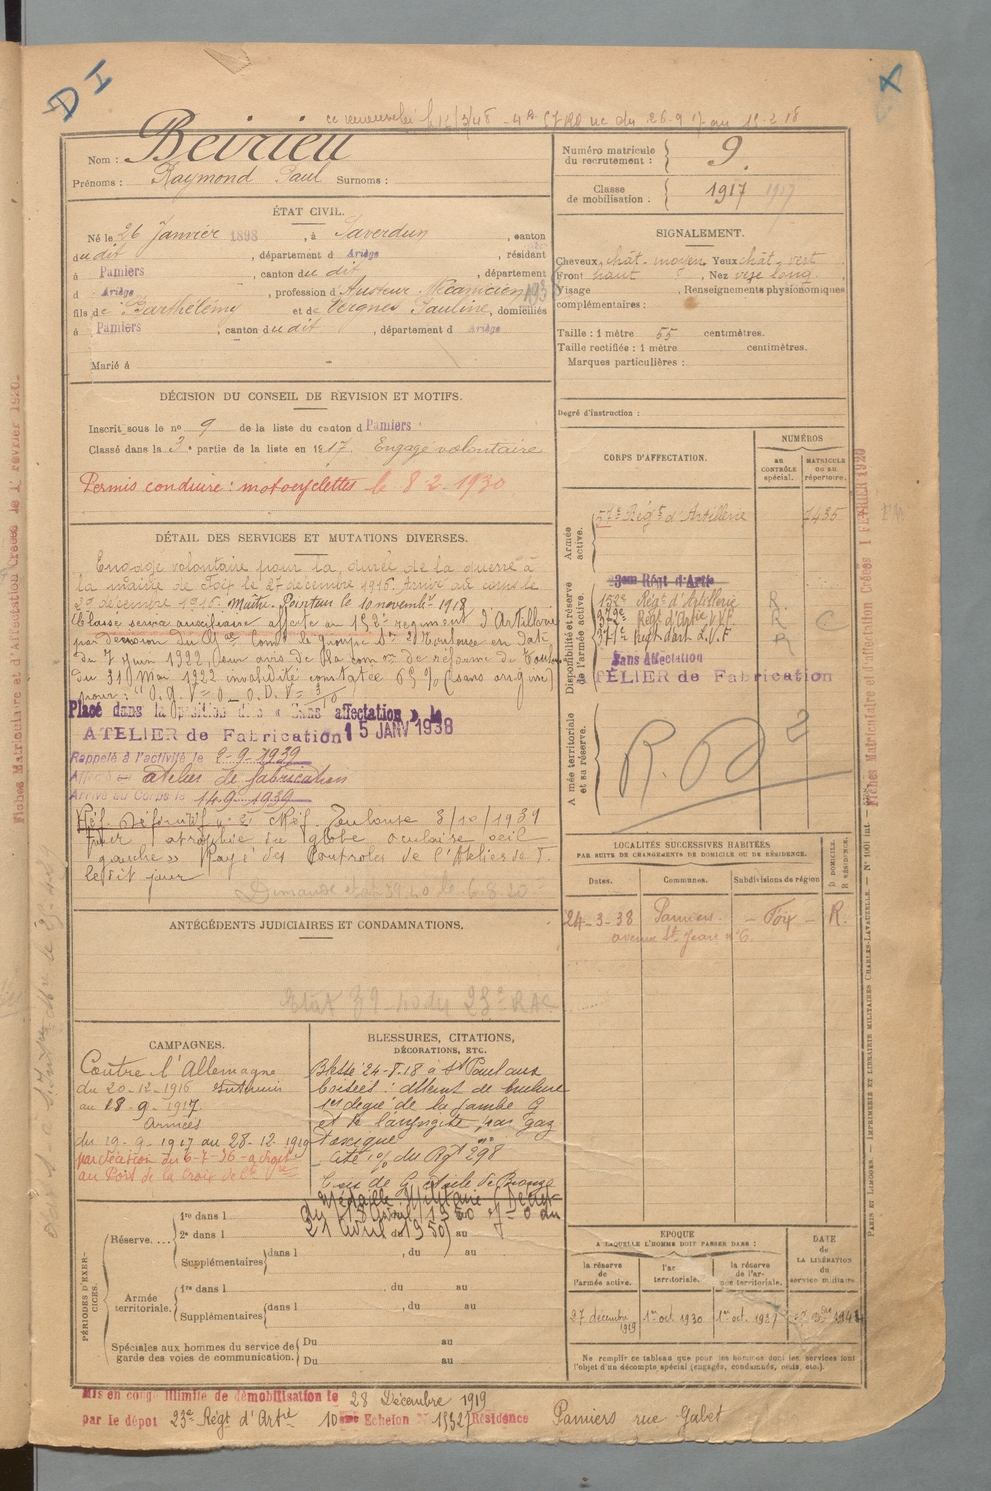 D I
X
ce renouvelé le 12/3/48
Nom : Beirieu
Prénoms : Raymond Paul Surnoms :
ÉTAT CIVIL.
Né le 26 Janvier 1898, à Saverdun, canton
du dit, département d Ariège, résidant
à Pamiers, canton du dit, département
d Ariège, profession d'Ajusteur Mécanicien
fils de Barthélémy et de Vergnes Pauline, domiciliés
à Pamiers, canton du dit, département d Ariège
Marié à
DÉCISION DU CONSEIL DE REVISION ET MOTIFS.
Inscrit sous le no 9 de la liste du canton d Pamiers
Classé dans la 3e partie de la liste en 1917. Engagé volontaire
Permis conduire : motocyclettes le 8-2-1930
DÉTAIL DES SERVICES ET MUTATIONS DIVERSES.
Engagé volontaire pour la durée de la guerre à
la mairie de Foix le 27 décembre 1916. Arrivé au corps le
décembre 1916. Maître Pointeur le 10 novembre 1918
Classé service auxiliaire affecté au 152e régiment d'Artillerie
par décision du Gal Comt le groupe 1re Toulouse en date
du 7 juin 1922, sur avis de la comon de réforme de Toulouse
du 31 Mai 1922 invalidité constatée 65 % (sans origine)
pour : "O.G.V = 0 - O.D.V =
Placé dans la position dite « Sans affectation » le
ATELIER de Fabrication 15 JANV 1938
Rappelé à l'activité le 2-9-1939
Affecté atelier de fabrication
Arrivé au Corps le 14-9-1939
Réf. Définitif Réf. Toulouse 3/10/1939
pour atrophie du globe oculaire oeil
gauche » Rayé des Controles de l'Atelier de T.
le dit jour
ANTÉCÉDENTS JUDICIAIRES ET CONDAMNATIONS.
Etat 39-40 du 23e RAC
CAMPAGNES.
Contre l'Allemagne
du 20-12-1916 Intérieur
au 18-9-1917.
Armées
du 19-9-1917 au 28-12-1919
par décision du 6-7-36 a droit
au Port de la Croix de Ct Vre
BLESSURES, CITATIONS,
DÉCORATIONS, ETC.
Blessé 24-8-18 à St Paul aux
boisées : atteint de brulure
1er degré de la jambe G
et de laryngite par gaz
toxique
Cité du Rgt 298
Croix de G étoile de Bronze
Médaille Militaire (Décret
du Avril 1950 J-O du
21 Avril 1950)
PÉRIODES D'EXERCICES.
Réserve....
1re dans l
2e dans l du au
Supplémentaires dans l , du au
Armée territoriale.
1re dans l , du au
Supplémentaires dans l , du au
Spéciales aux hommes du service de garde des voies de communication.
Du au
Du au
Mis en congé illimité de démobilisation le 28 Décembre 1919
par le dépot 23e Régt d'Artie 10eme Echelon Résidence Pamiers rue Gabet
Numéro matricule du recrutement : 9.
Classe de mobilisation : 1917 1917
SIGNALEMENT.
Cheveux chât. moyen Yeux chât. vert
Front haut, Nez long.
Visage , Renseignements physionomiques
complémentaires :
Taille : 1 mètre 55 centimètres.
Taille rectifiée : 1 mètre centimètres.
Marques particulières :
Degré d'instruction :
CORPS D'AFFECTATION.
NUMÉROS
AU CONTRÔLE spécial.
MATRICULE ou au répertoire.
Armée active.
57e Régt d'Artillerie 7435
Disponibilité et réserve de l'armée active.
23eme Régt d'Artie
152e Régt d'Artillerie R.
372e Régt d'Artie V.F. R. C
371e Régt d'art. L.V.F R
Sans Affectation
ATELIER de Fabrication
Armée territoriale et sa réserve.
R.D 2
LOCALITÉS SUCCESSIVES HABITÉES
PAR SUITE DE CHANGEMENTS DE DOMICILE OU DE RÉSIDENCE.
Dates. Communes. Subdivisions de région D DOMICILE. R RÉSIDENCE.
24-3-38 Pamiers - Foix - R.
avenue St Jean no 6
EPOQUE
A LAQUELLE L'HOMME DOIT PASSER DANS :
la réserve de l'armée active.
l'ar territoriale.
la réserve de l'armée territoriale.
DATE de LA LIBÉRATION du service militaire.
27 décembre 1919 1er oct. 1930 1er oct. 1937
Ne remplir ce tableau que pour les hommes dont les services font
l'objet d'un décompte spécial (engagés, condamnés, omis, etc.).
Fiches Matriculaire et d'Affectation Créées le 1 FEVRIER 1920.
Fiches Matriculaire et d'affectation Créées 1 FEVRIER 1920
PARIS ET LIMOGES. — IMPRIMERIE ET LIBRAIRIE MILITAIRES CHARLES-LAVAUZELLE. — No 1001 int.